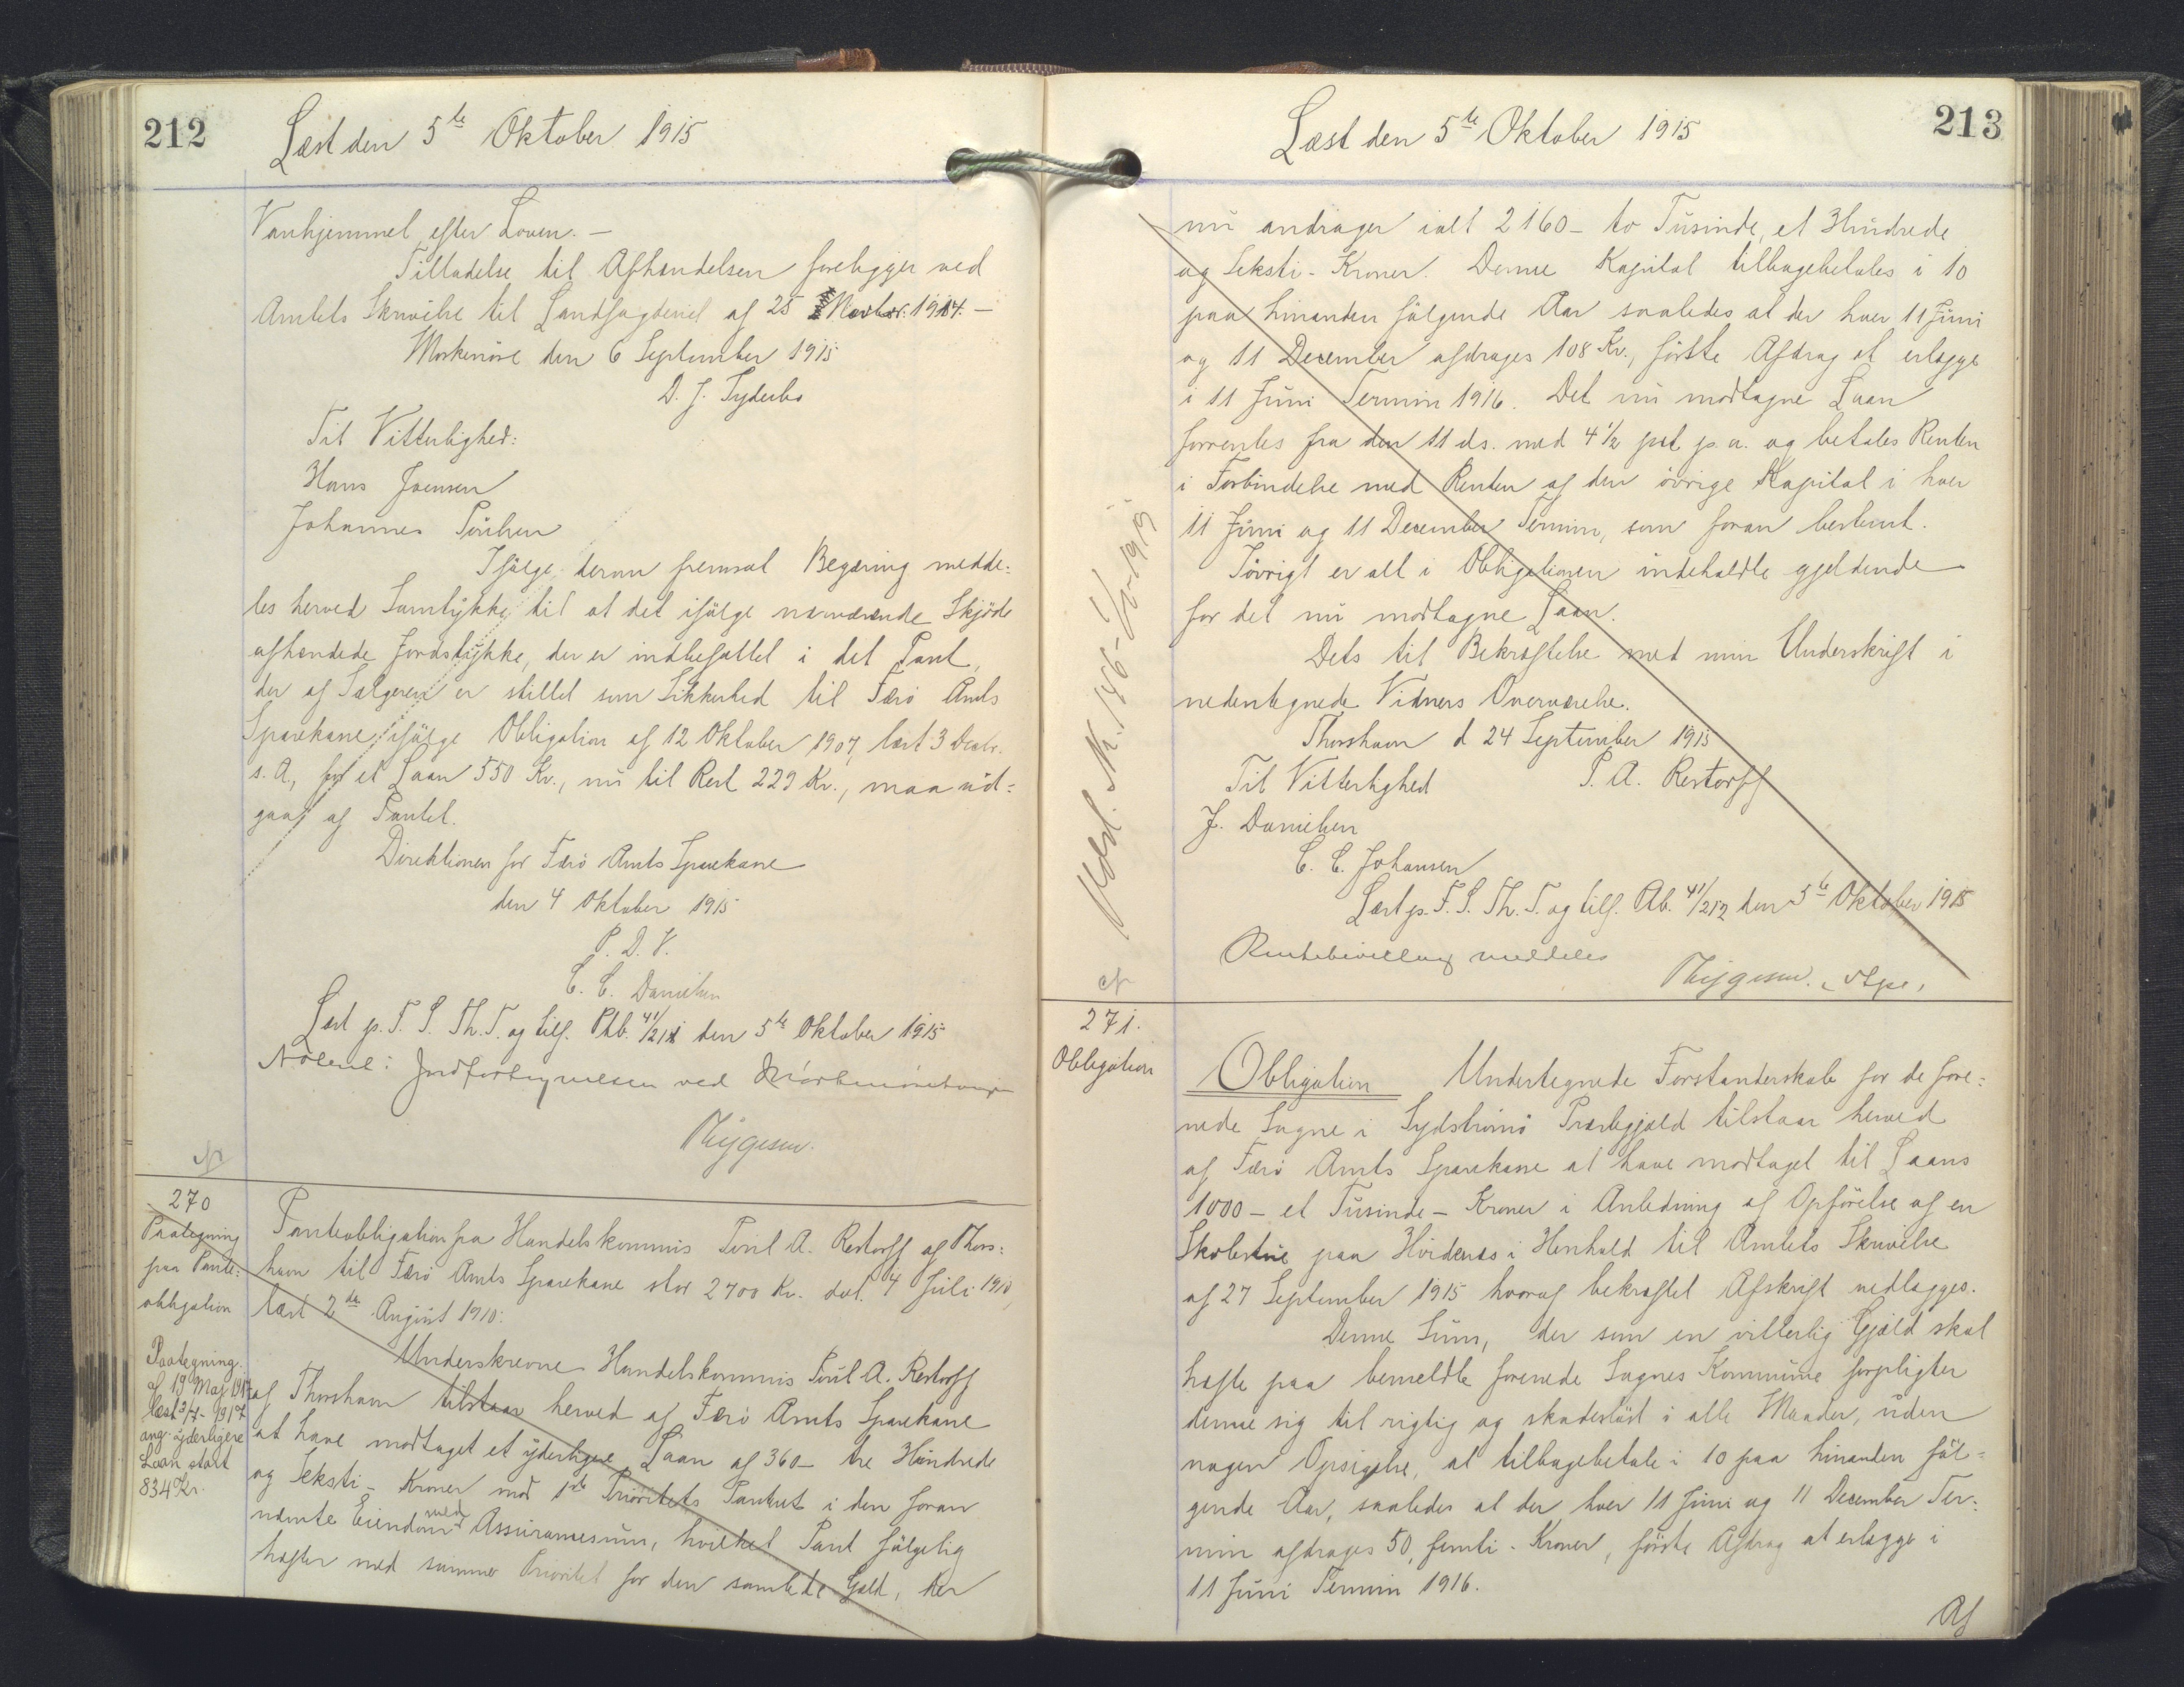 212
Læst den 5te Oktober 1915
Vanhjemmel efter Loven. –
Tilladelse til Afhændelsen foreligger ved
Amtets Skrivelse til Landfogderiet af 25 Novbr. 1914. –
Morkenöre den 6 September 1915
D. J. Syderbö
Til Vitterlighed:
Hans Joensen
Johannes Poulsen
Ifölge derom fremsat Begæring medde:
les herved Samtykke til at det ifölge nærværende Skjöde
afhændede Jordstykke, der er indbefattet i det Pant,
der af Sælgeren er stillet som Sikkerhed til Færö Amts
Sparekasse ifölge Obligation af 12 Oktober 1907, læst 3 Decbr.
s. A., for et Laan 550 Kr., nu til Rest 229 Kr., maa ud=
gaa af Pantet.
Direktionen for Færö Amts Sparekasse
den 4 Oktober 1915
P. D. V.
C. C. Danielsen
Læst p. F. S. Th. T. og tilf. Ptb. 41/212 den 5te Oktober 1915
Noteret: Jordfortegnelsen ved
270
Paategning
paa Pante:
obligation
Pantobligation fra Handelskommis Poul A. Restorff af Thors:
havn til Færö Amts Sparekasse stor 2700 Kr. dat. 4 Juli 1910,
læst 2de August 1910:
Paategning
af 19 Maj 1917
læst 3/7-1917
ang. yderligere
Laan stort
834 Kr.
Underskrevne Handelskommis Poul A. Restorff
af Thorshavn tilstaar herved af Færö Amts Sparekasse
at have modtaget et yderligere Laan af 360 – tre Hundrede
og Seksti – Kroner mod 1ste Prioritets Panteret i den foran
nævnte Eiendom med Assurancesum, hvilket Pant fölgelig
hæfter med samme Prioritet for den samlede Gæld, der
213
Læst den 5te Oktober 1915
nu andrager ialt 2160 – to Tusinde, et Hundrede
og Seksti – Kroner. Denne Kapital tilbagebetales i 10
paa hinanden fölgende Aar saaledes at der hver 11 Juni
og 11 December afdrages 108 Kr., förste Afdrag at erlægge
i 11 Juni Termin 1916. Det nu modtagne Laan
forrentes fra den 11 ds. med 4½ pct p. a. og betales Renten
i Forbindelse med Renten af den övrige Kapital i hver
11 Juni og 11 December Termin, som foran bestemt.
Iövrigt er alt i Obligationen indeholdte gjeldende
for det nu modtagne Laan.
Dets til Bekræftelse med min Underskrift i
nedentegnede Vidners Overværelse.
Thorshavn d 24 September 1915
Til Vitterlighed P. A. Restorff
J. Danielsen
C. C. Johansen
Læst p. F. S. Th. T. og tilf. Ab. 41/212 den 5te Oktober 1915
Rentebevilling meddeles
271.
Obligation
Obligation Undertegnede Forstanderskab for de fore:
nede Sogne i Sydströmö Præstegjæld tilstaar herved
af Færö Amts Sparekasse at have modtaget til Laans
1000 – et Tusinde – Kroner i Anledning af Opförelse af en
Skolestue paa Hvidenæs i Henhold til Amtets Skrivelse
af 27 September 1915 hvoraf bekræftet Afskrift vedlægges.
Denne Sum, der som en vitterlig Gjæld skal
hæfte paa bemeldte forenede Sognes Kommune forpligter
denne sig til rigtig og skadeslöst i alle Maader, uden
nogen Opsigelse, at tilbagebetale i 10 paa hinanden föl=
gende Aar, saaledes at der hver 11 Juni og 11 December Ter:
min afdrages 50, femti – Kroner, förste Afdrag at erlægge i
11 Juni Termin 1916.
Af